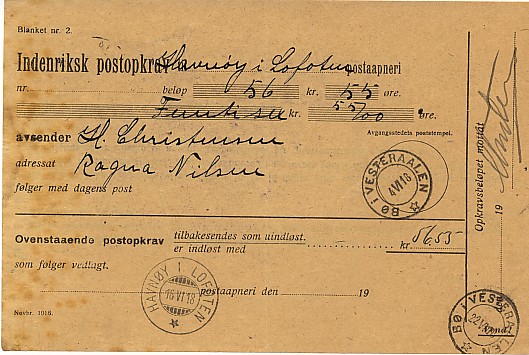 Blanket nr. 2.
Indenriksk postopkrav Havnøy i Lofoten postaapneri
nr. beløp 56 kr. 55 øre.
Femti sex kr. 55/100 øre.
avsender H. Christensen
Avgangsstedets poststempel.
adressat Ragna Nilsen
følger med dagens post
BØ i VESTERAALEN
4 VI 18
Ovenstaaende postopkrav tilbakesendes som uindløst.
er indløst med kr. 56,55
som følger vedlagt.
HAVNØY I LOFOTEN
16 VI 18
postaapneri den 19
Novbr. 1916.
Opkravsbeløpet motfat
19
BØ i VESTERAALEN